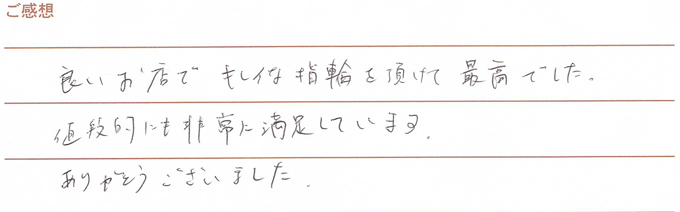 ご感想
良いお店でキレイな指輪を頂けて最高でした。
値段的にも非常に満足しています。
ありがとうございました。